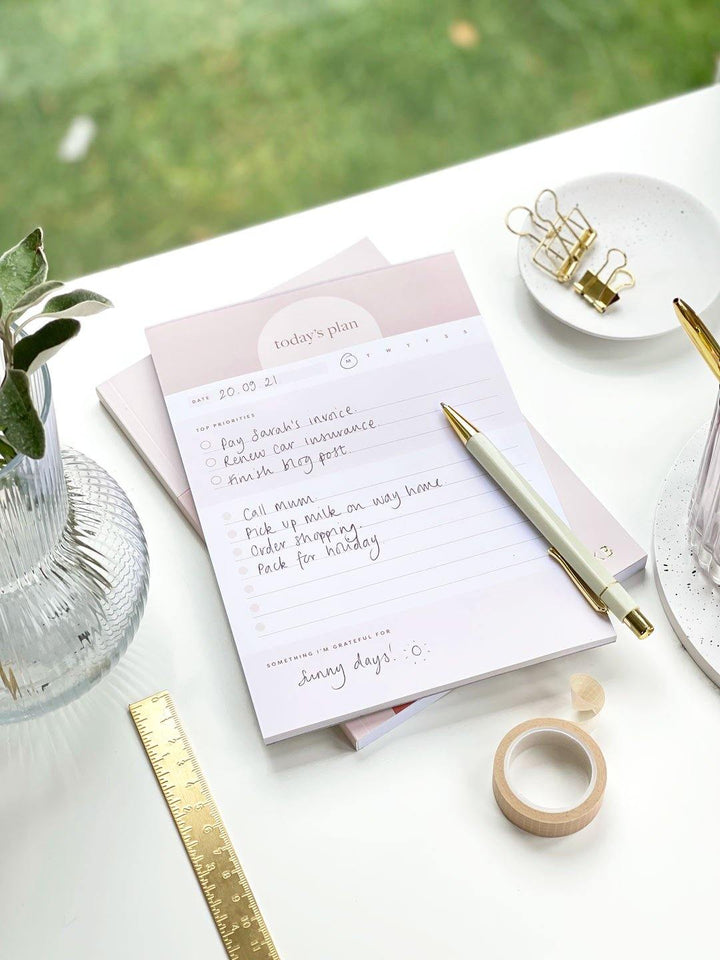 today's plan
DATE 20.09.21 M T W T F S S
TOP PRIORITIES
Pay Sarah's invoice.
Renew car insurance.
Finish blog post.
Call mum.
Pick up milk on way home
Order shopping.
Pack for holiday
SOMETHING I'M GRATEFUL FOR
Sunny days!